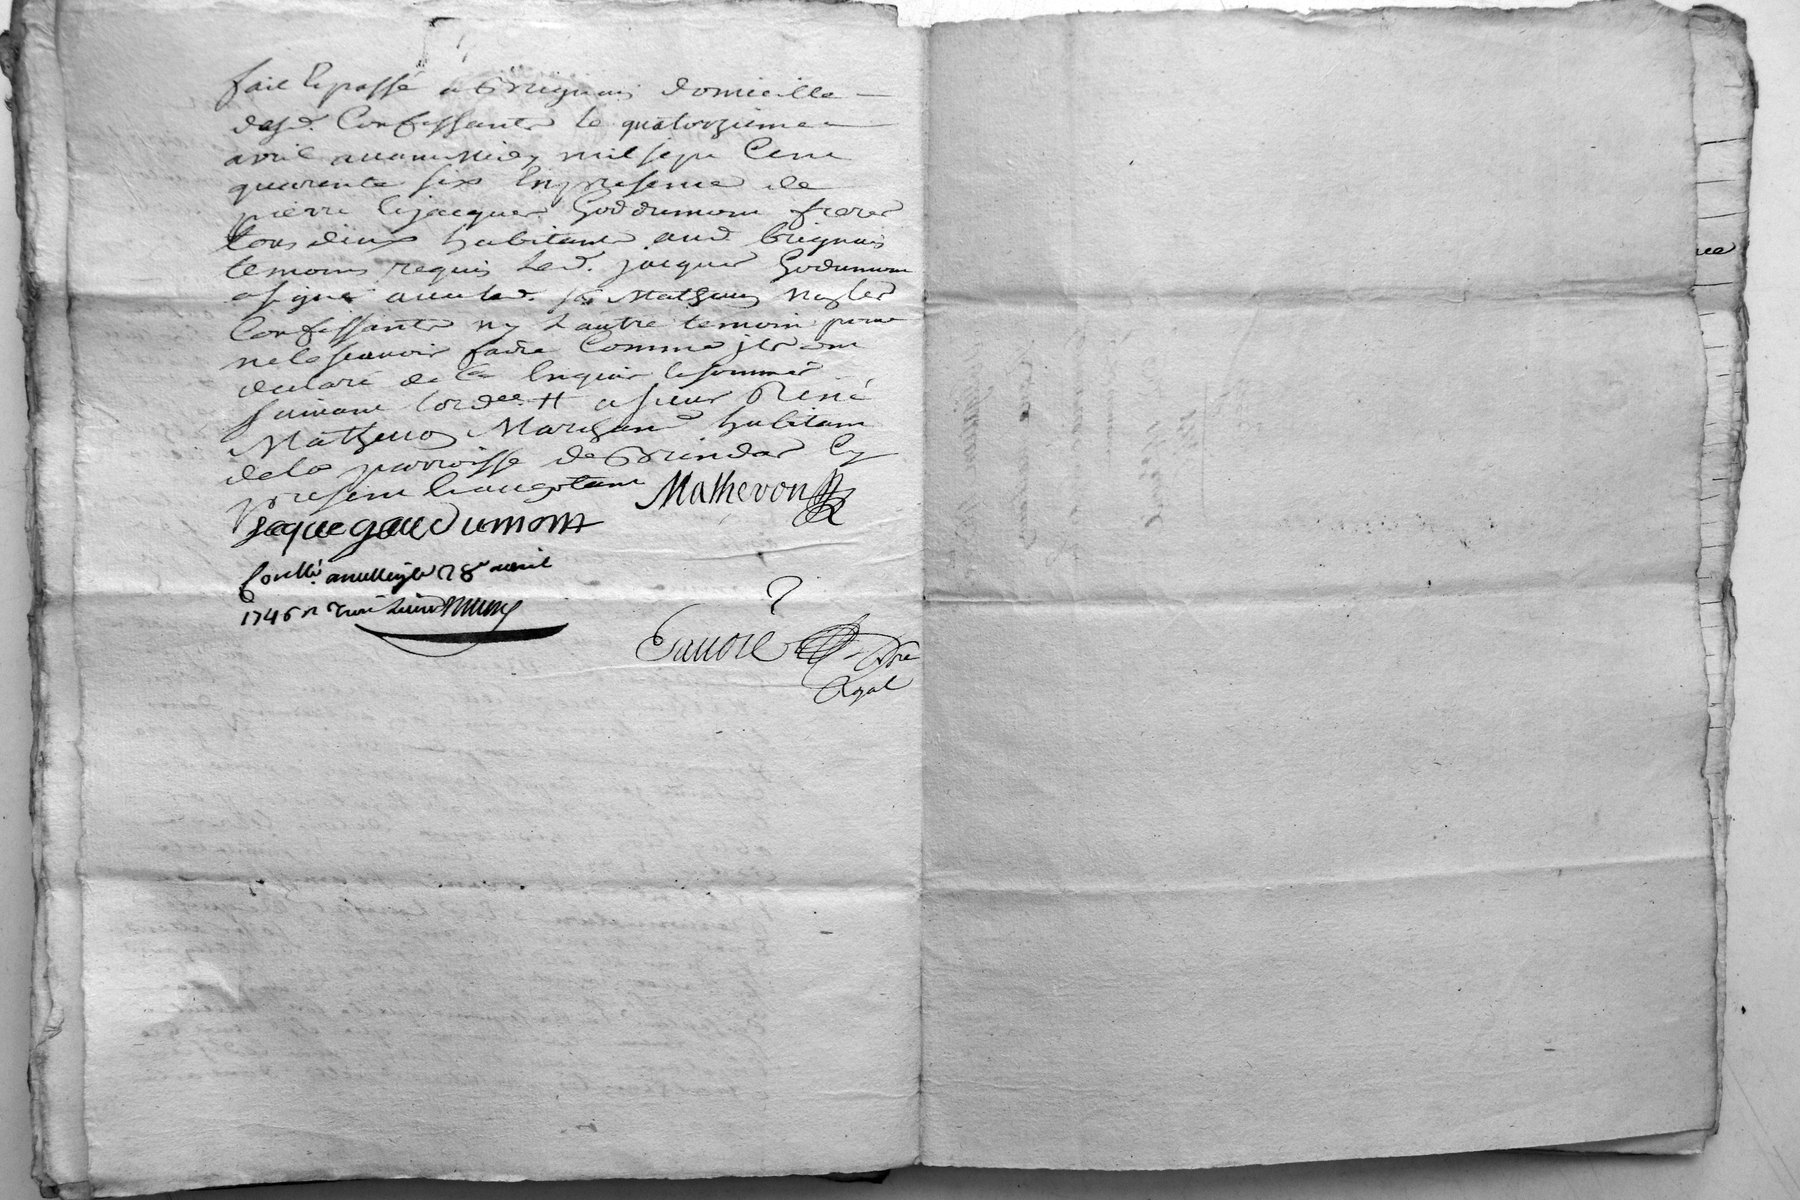 fait & passé a Brignais domicille
desd. Confessants le quatorzieme
avril avant midy mil sept Cent
quarente six En presence de
pierre & jacques Goddumont freres
tous deux habitants aud brignais
temoins requis Led. jacques Godumont
a signé avec led. sr Mathevon non les
Confessants ny L'autre temoin pour
ne le scavoir faire Comme ils ont
declaré de ce Enquis & sommés
suivant lord.ce # a sieur René
Mathevon Marchand habitant
de la parroisse de Grindas Cy
present & acceptant Mathevon
Jaque gaudumont
Conttlé a 28e avril
1746
Savoie
Nore
Royal